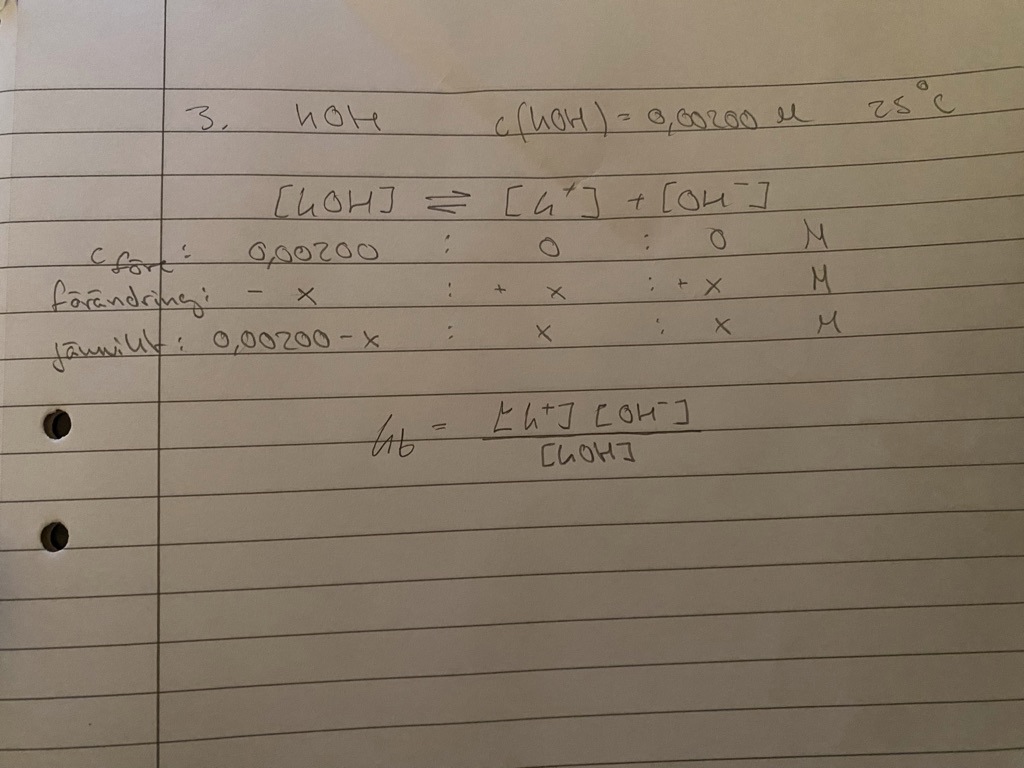 3. KOH c(KOH) = 0,00200 M 25°C
[KOH] ⇌ [K⁺] + [OH⁻]
c före : 0,00200 : 0 : 0 M
förändring: - x : + x : + x M
jämvikt : 0,00200 - x : x : x M
Kb = [K⁺] [OH⁻] / [KOH]